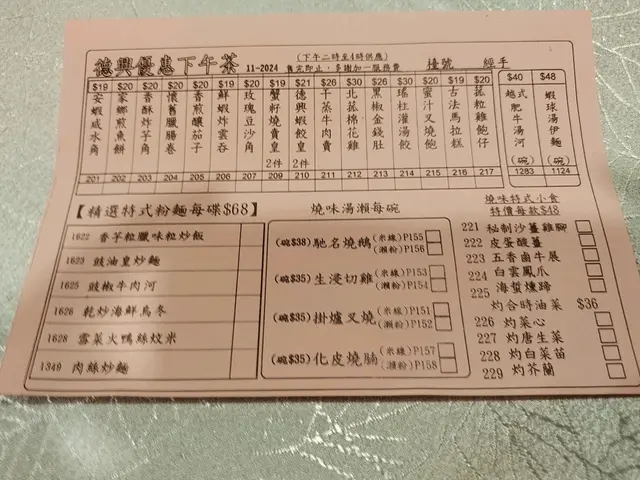 德興優惠下午茶 11-2024 (下午二時至4時供應) 售完即止,多謝加一服務費 檯號 經手
$19 $20 $20 $20 $20 $19 $20 $19 $21 $20 $20 $20 $20 $20 $19 $20 $40 $48
安蝦咸水角 201
家鄉煎魚餅 202
香酥炸芋角 203
懷舊臘腸卷 204
香煎釀茄子 205
鮮蝦炸雲吞 206
玫瑰豆沙角 207
蟹籽燒賣皇 2件 208
德興蝦餃皇 2件 209
干蒸牛肉賣 210
北菇棉花雞 211
黑椒金錢肚 212
瑤柱灌湯餃 213
蜜汁叉燒飽 214
古法馬拉糕 215
菰粒雞飽仔 217
越式肥牛湯河 (碗) 1283
蝦球湯伊麵 (碗) 1124
【精選特式粉麵每碟$68】
1622 香芋粒臘味粒炒飯
1623 豉油皇炒麵
1625 豉椒牛肉河
1626 乾炒海鮮烏冬
1628 雪菜火鴨絲炆米
1349 肉絲炒麵
燒味湯瀨每碗
(碗$38) 馳名燒鵝 (米線)P155
(瀨粉)P156
(碗$35) 生浸切雞 (米線)P153
(瀨粉)P154
(碗$35) 掛爐叉燒 (米線)P151
(瀨粉)P152
(碗$35) 化皮燒腩 (米線)P157
(瀨粉)P158
燒味特式小食
特價每款$48
221 秘制沙薑雞腳
222 皮蛋酸薑
223 五香鹵牛展
224 白雲鳳爪
225 海蜇燻蹄
灼合時油菜 $36
226 灼菜心
227 灼唐生菜
228 灼白菜苗
229 灼芥蘭